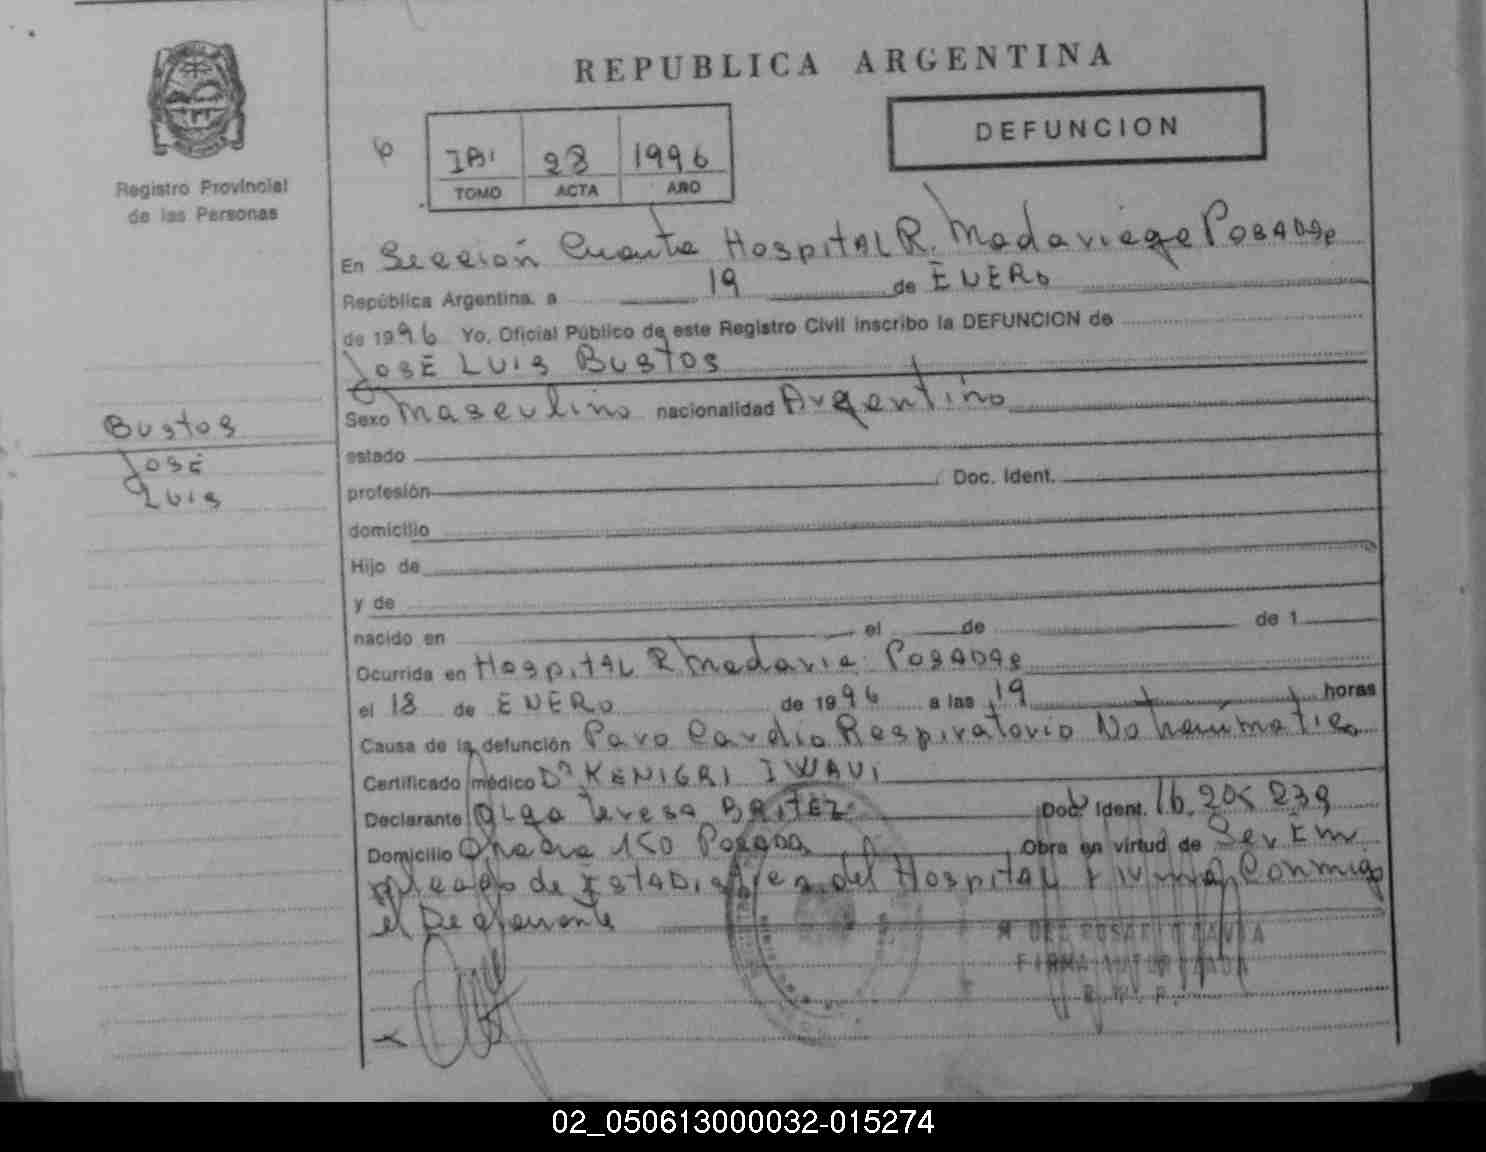 REPUBLICA ARGENTINA
DEFUNCION
Registro Provincial
de las Personas
28 1996
TOMO ACTA AÑO
En Sección Cuarta Hospital R. Madariaga Posadas
República Argentina, a 19 de ENERO
de 1996 Yo, Oficial Público de este Registro Civil inscribo la DEFUNCION de
José Luis Bustos
Sexo Masculino nacionalidad Argentino
Bustos
José
Luis
estado
profesión Doc. Ident.
domicilio
Hijo de
y de
nacido en el de de 1
Ocurrida en Hospital R Madaria. Posadas
el 18 de ENERO de 1996 a las 19 horas
Causa de la defunción Paro Cardio Respiratorio No traumatico
Certificado médico Dr. KENIGRI
Declarante Olga Teresa BRITEZ Doc. Ident. 16.205 239
Domicilio 150 Posadas Obra en virtud de Ser Em
pleado de Estadistica del Hospital y firma Conmigo
el Declarante
FIRMA AUTORIZADA
R. P. P.
02_050613000032-015274